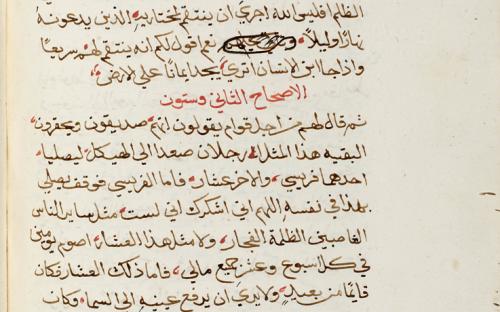 الظلم افليس الله احري ان ينتقم لمختاريه الذين يدعونه
نهارًا وليلًا نعم اقول لكم انه ينتقم لهم سريعًا
واذا جا ابن الانسان اتري يجد ايمانًا علي الارض
الاصحاح الثاني وستون
ثم قال لهم من اجل قوام يقولون انهم صديقون ويحقرون
البقيه هذا المثل رجلان صعدا الي الهيكل ليصليا
احدهما فريسي والاخر عشار فاما الفريسي فوقف يصلي
بهذا في نفسه اللهم اني اشكرك اني لست مثل ساير الناس
الغاصبين الظلمة الفجار ولا مثل هذا العشار اصوم يومين
في كل اسبوع وعشر جميع مالي فاما ذلك العشار فكان
قايمًا من بعيد ولا يري ان يرفع عينيه الي السما وكان